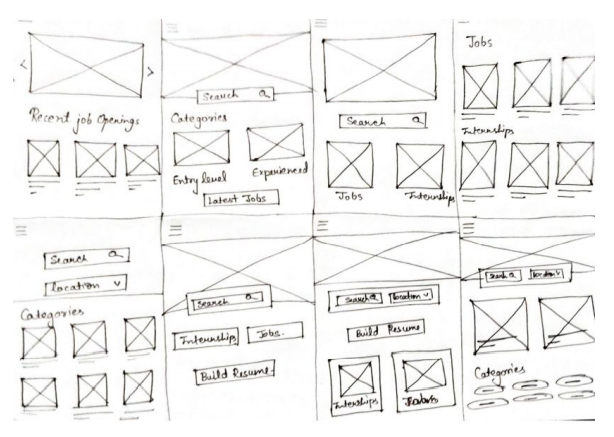 Recent job Openings
Search
Categories
Entry level
Experienced
Latest Jobs
Search
Jobs
Internships
Jobs
Internships
Search
Location
Categories
Search
Internships
Jobs.
Build Resume
Search
Location
Build Resume
Internships
Search
Location
Categories